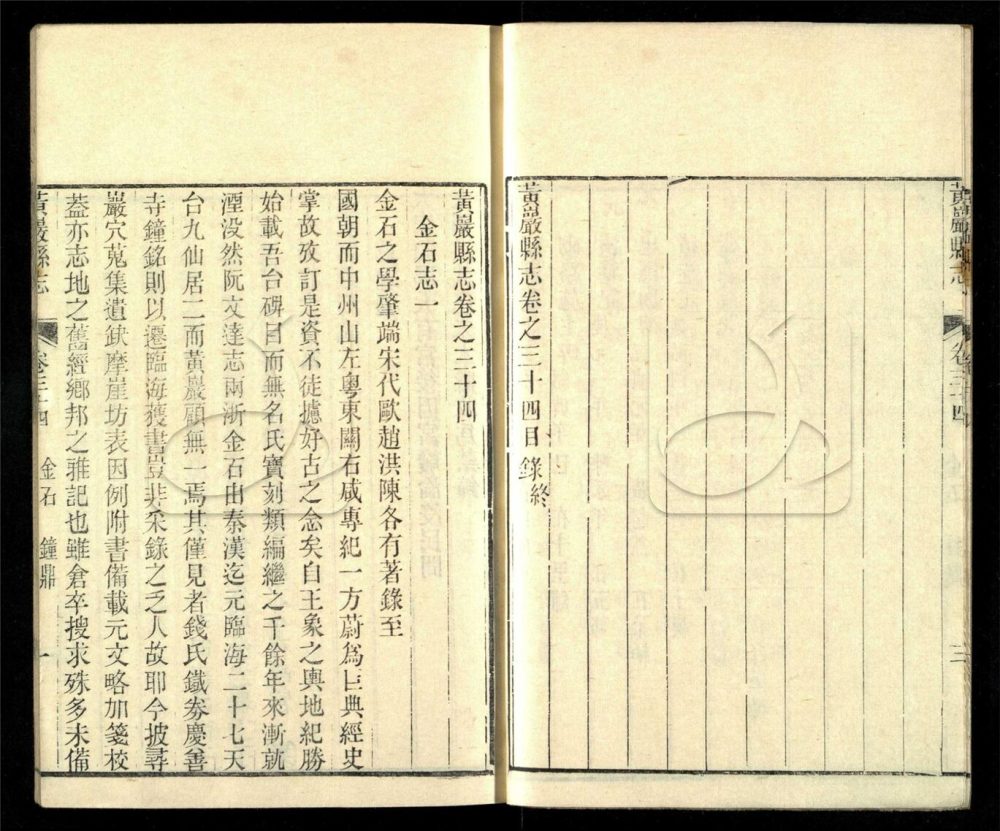 黃巖縣志
卷三十四
三
黃巖縣志卷之三十四目錄終
黃巖縣志卷之三十四
金石志一
金石之學肇端宋代歐趙洪陳各有著錄至
國朝而中州山左粵東關右咸專紀一方蔚為巨典經史
掌故攷訂是資不徒攄好古之念矣自王象之輿地紀勝
始載吾台碑目而無名氏寶刻類編繼之千餘年來漸就
湮没然阮文達志兩浙金石由秦漢迄元臨海二十七天
台九仙居二而黃巖顧無一焉其僅見者錢氏鐵券慶善
寺鐘銘則以遷臨海獲書豈非采錄之乏人故耶今披尋
巖穴蒐集遺缺摩崖坊表因例附書備載元文略加箋校
葢亦志地之舊經鄉邦之雅記也雖倉卒搜求殊多未備
黃巖縣志
卷三十四
金石
鐘鼎
一